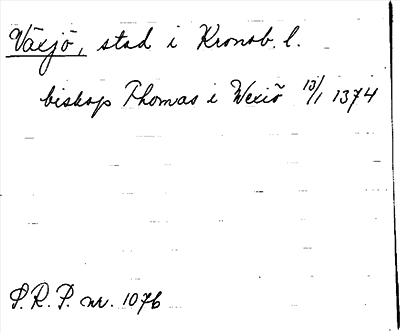 Växjö, stad i Kronob. l.
biskop Thomas i Wexiö 13/1 1374
S.R.P. nr. 1076